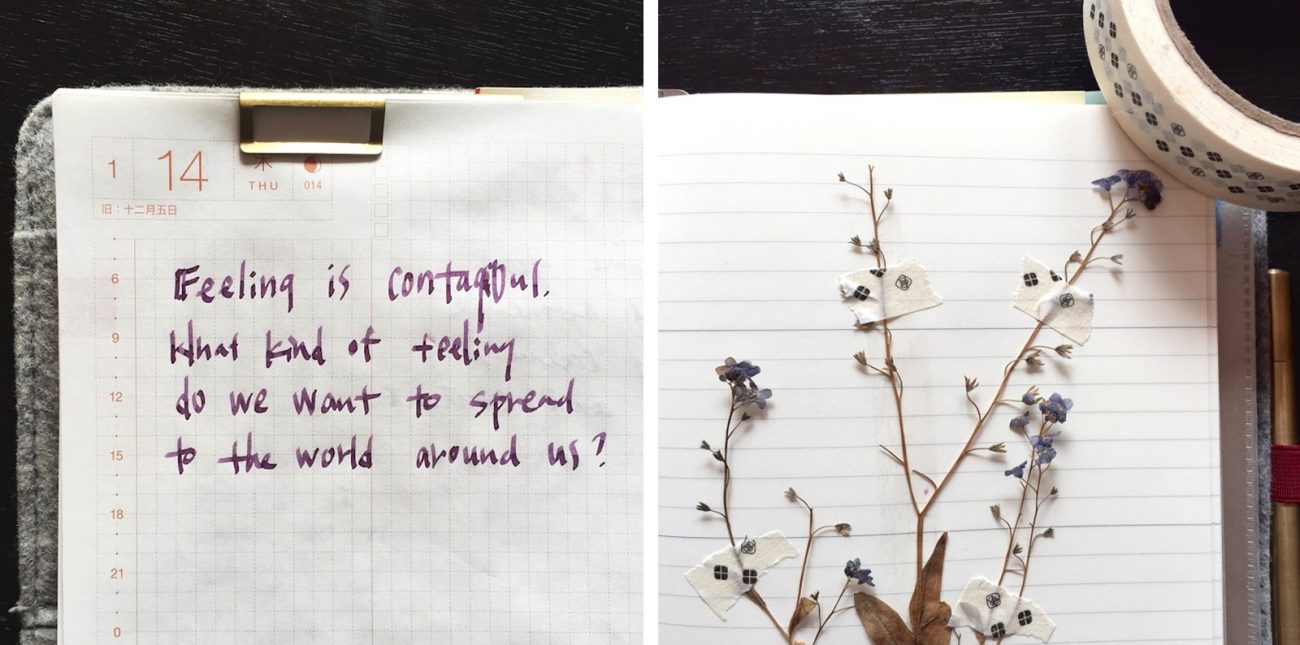 1 14 木 THU 014
旧：十二月五日
6
9
12
15
18
21
0
Feeling is contagiul.
What kind of feeling
do we want to spread
to the world around us?